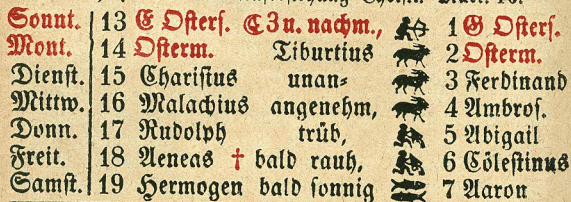 Sonnt. 13 E Osterf. ☾ 3 u. nachm., 1 G Osterf.
Mont. 14 Osterm. Tiburtius 2 Osterm.
Dienst. 15 Charistus unan- 3 Ferdinand
Mittw. 16 Malachius angenehm, 4 Ambros.
Donn. 17 Rudolph trüb, 5 Abigail
Freit. 18 Aeneas † bald rauh, 6 Cölestinus
Samst. 19 Hermogen bald sonnig 7 Aaron